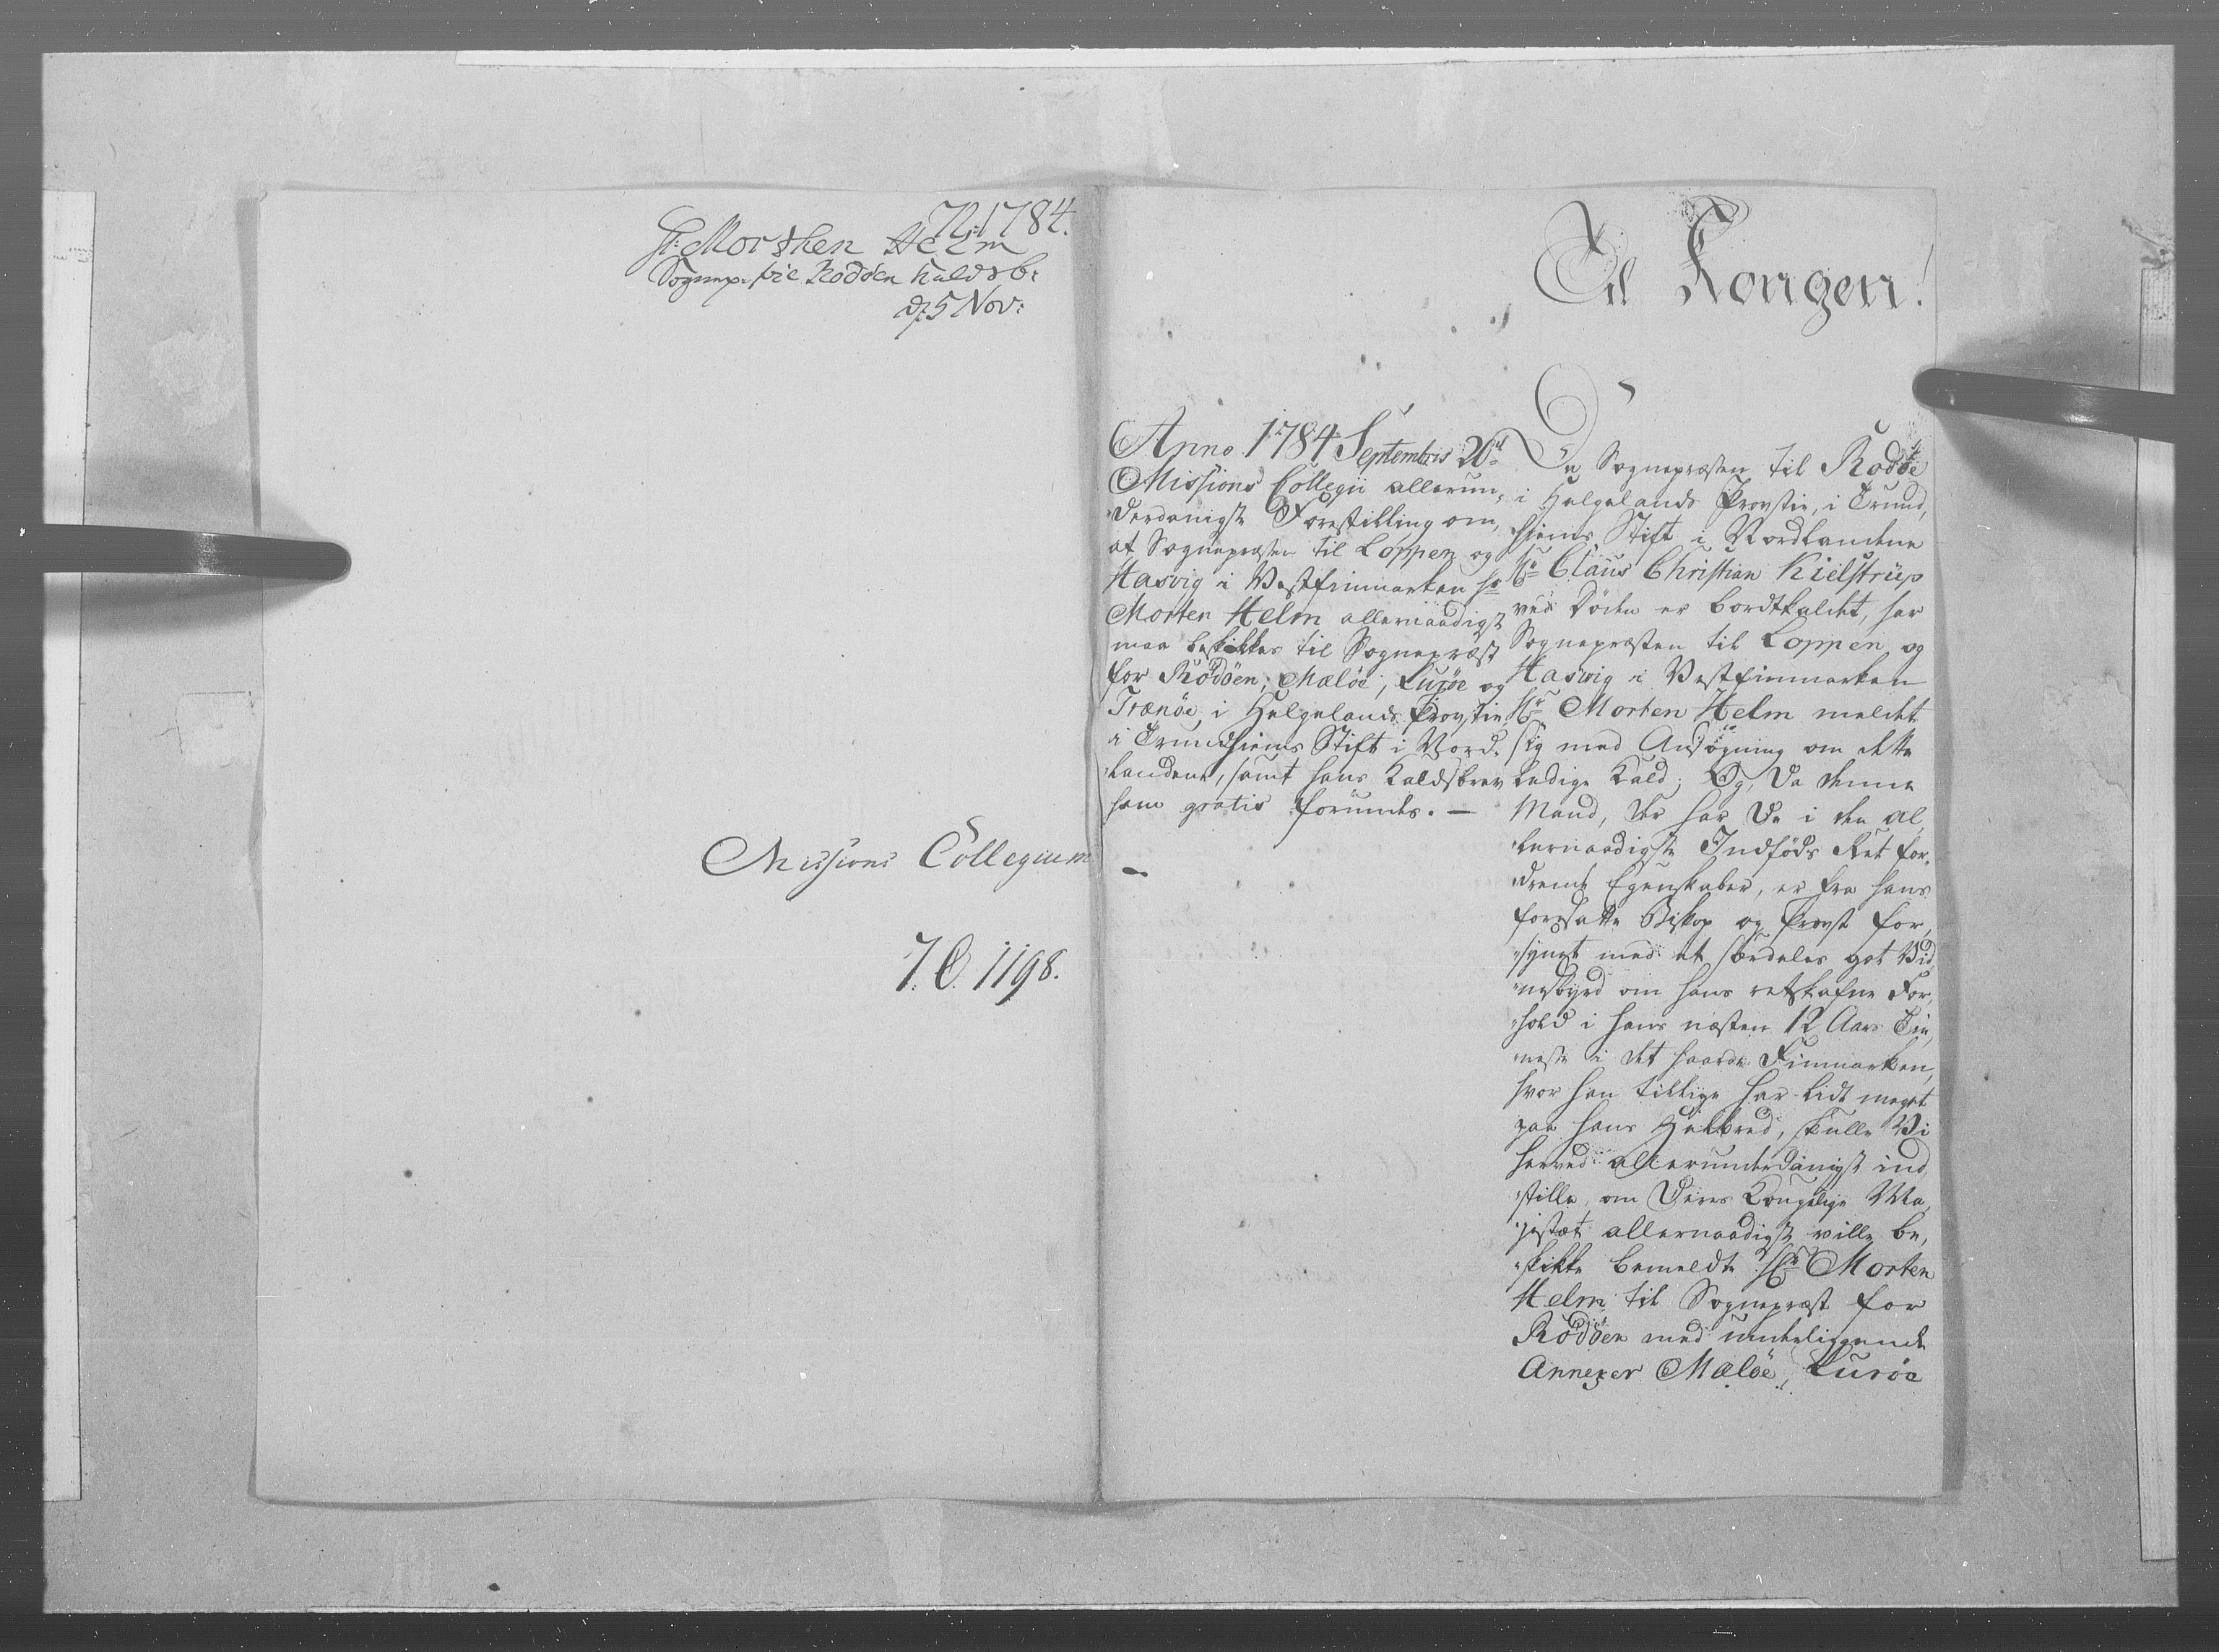 72. 1784.
H: Morthen Helm
Sognep. til Rodöen Kaldsb:
d. 5 Nov:
Missions Collegium
1198.
Til Kongen!
Anno 1784 Septembris 20d
Missions Collegii allerun„
„derdanigste Forestilling om,
at Sognepræsten til Loppen og
Hasvig i Vestfinmarken Hr
Morten Helm allernaadigst
maa beskikkes til Sognepræst
for Rödöen, Meløe, Luröe og
Trænöe i Helgelands Provstie
i Trundhiems Stift i Nord„
„landene, samt hans Kaldsbrev
ham gratis forundes. —
Da Sognepræsten til Rodöe
i Helgelands Provstie, i Trund„
hiems Stift i Nordlandene
Hr Claus Christian Kielstrup
ved Döden er bordtkaldet, har
Sognepræsten til Loppen og
Hasvig i Vestfinmarken
Hr Morten Helm meldet
sig med Ansögning om dette
ledige Kald; Og, da denne
Mand, der har de i den al„
„lernaadigste Indföds Ret for„
„drende Egenskaber, er fra hans
foresatte Biskop og Provst for„
„synet med et særdeles got Vid„
„nesbyrd om hans retskafne For„
„hold i hans næsten 12 Aars Tie„
„neste i det haarde Finmarken,
hvor han tillige har lidt meget
paa hans Helbred, skulle Vi
herved allerunderdanigst ind„
„stille, om Deres Kongelige Ma„
„jestæt allernaadigst ville be„
„skikke bemeldte Hr Morten
Helm til Sognepræst for
Rödöen med underliggende
Annexer Mælöe, Luröe